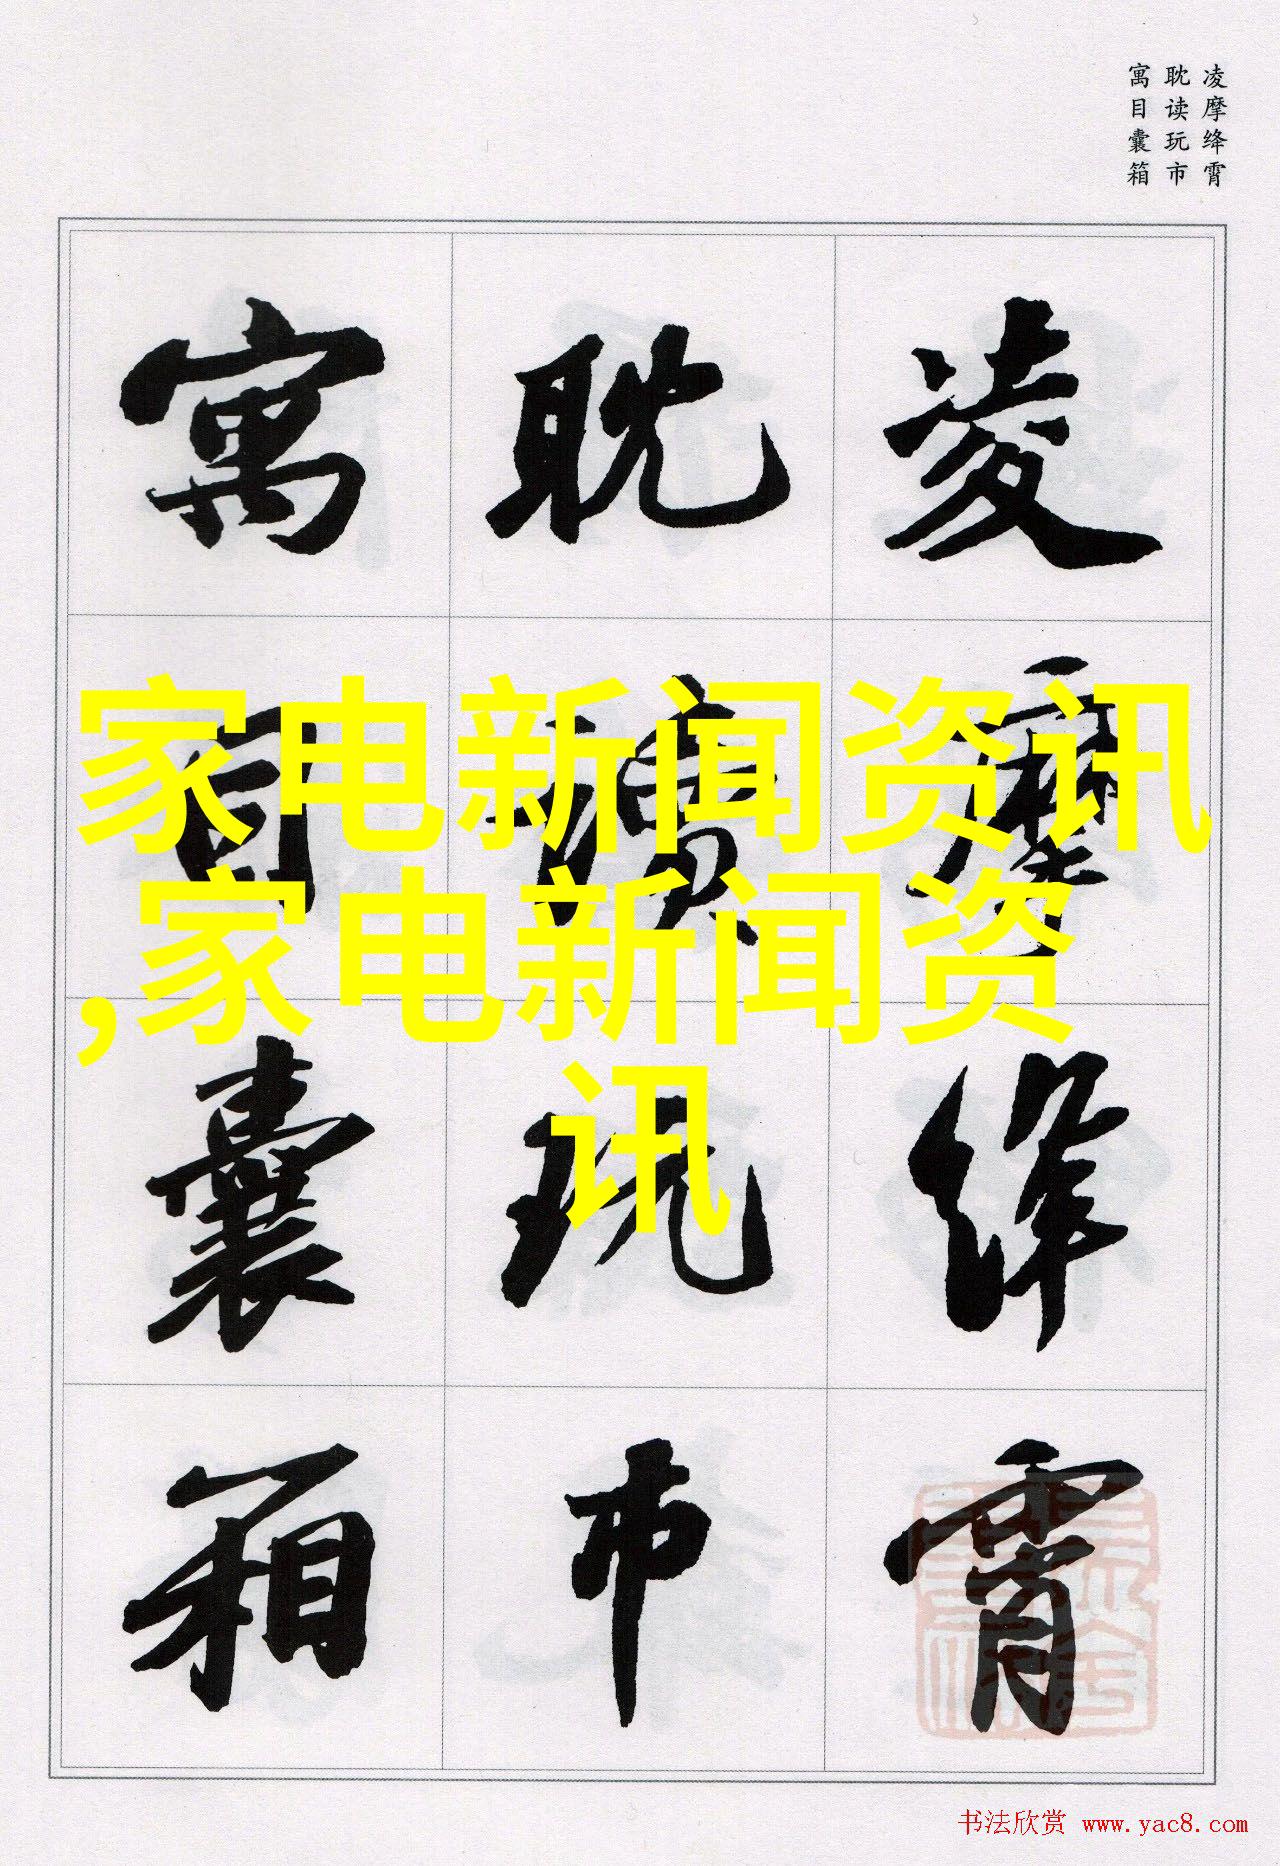 凌摩绛霄
耽读玩市
寓目囊箱
凌摩绛霄
耽读玩市
寓目囊箱
家电新闻资讯
,家电新闻资
讯
书法欣赏 www.yac8.com